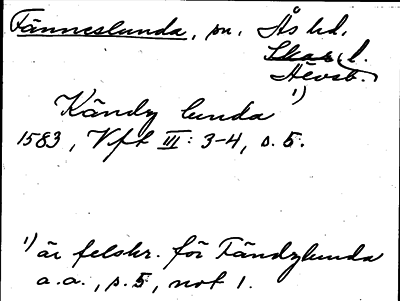 Fänneslunda, sn. Ås hd.
Skar. l.
Älvsb.
Kändz lunda 1)
1583, Vft III: 3-4, s. 5.
1) är felskr. för Fändzlunda
a.a., s. 5, not 1.